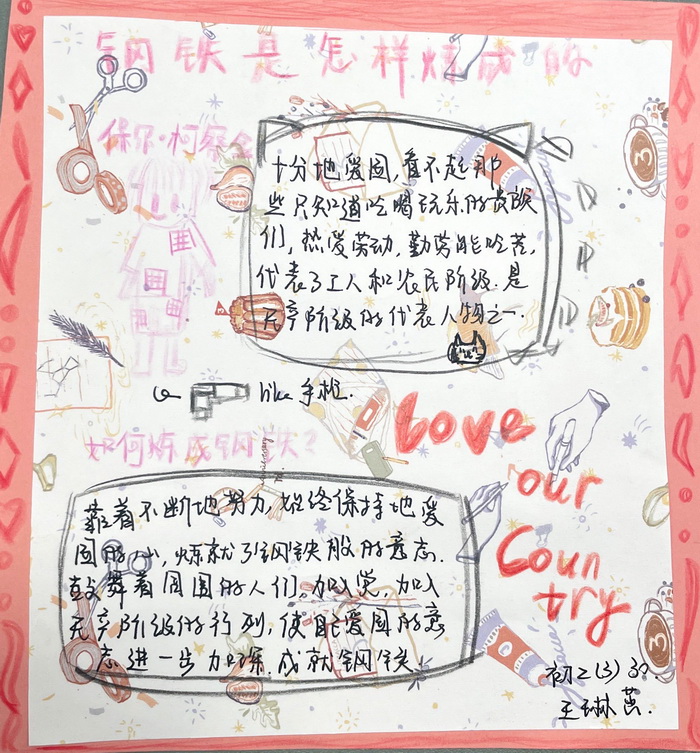 钢铁是怎样炼成的
保尔·柯察金
十分地爱国,看不起那
些只知道吃喝玩乐的贵族
们,热爱劳动,勤劳能吃苦,
代表了工人和农民阶级.是
无产阶级的代表人物之一.
like 手枪.
如何炼成钢铁?
Love
our
Coun
try
靠着不断地努力,始终保持地爱
国的心,炼就了钢铁般的意志.
鼓舞着周围的人们。加入党,加入
无产阶级的行列,使自己爱国的意
志进一步加深.成就钢铁
初二(3) 30
王琳芸.